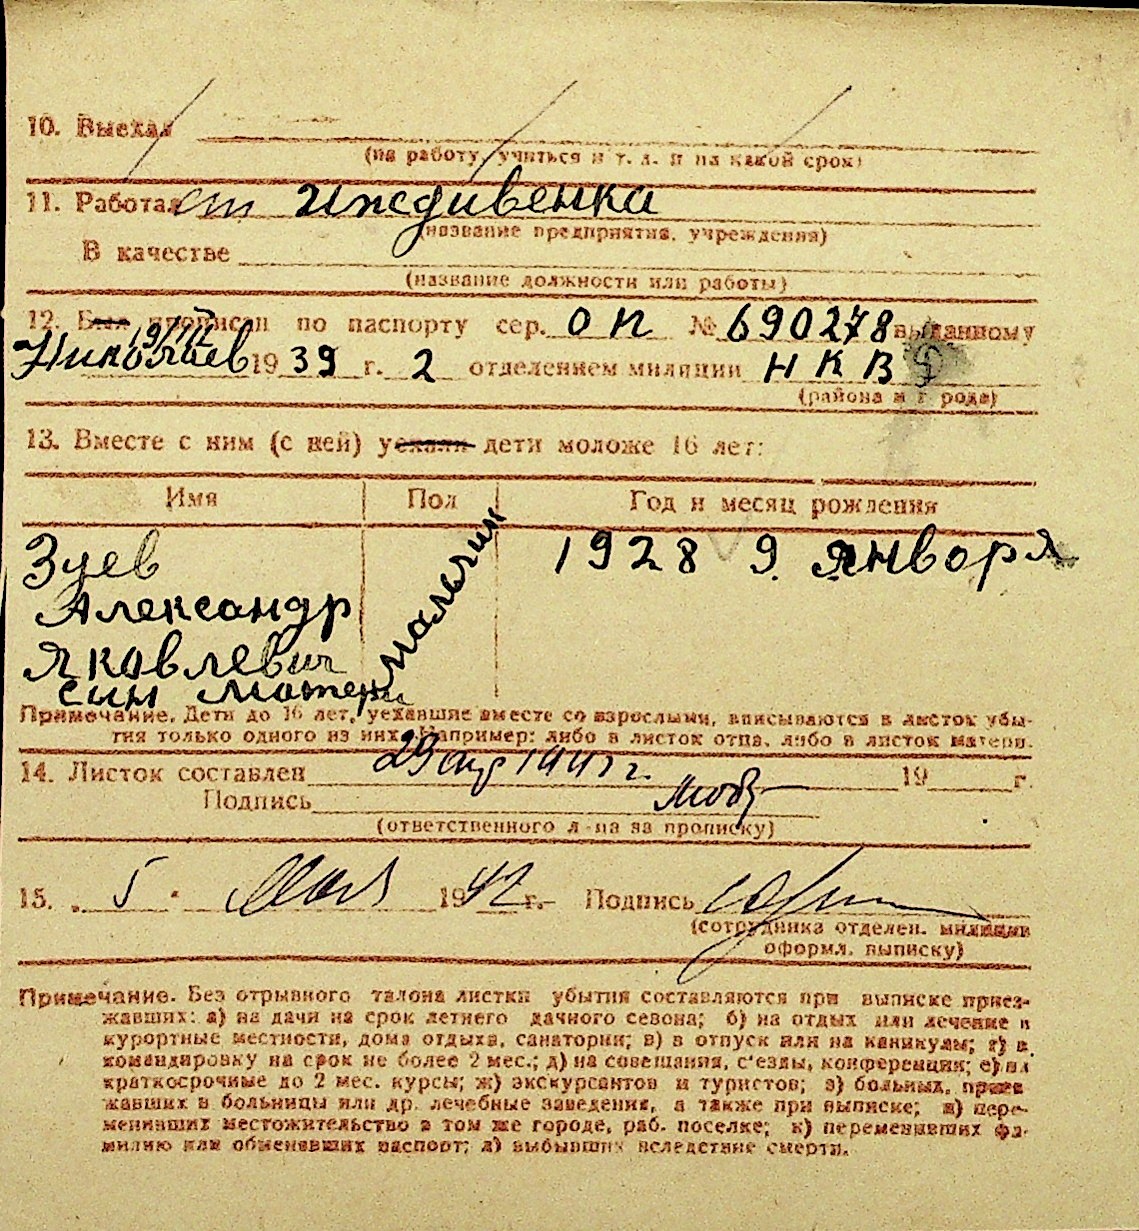 10. Выехал
(на работу, учиться и т. д. и на какой срок)
11. Работал ст Иждивенка
(название предприятия, учреждения)
В качестве
(название должности или работы)
12. Был прописан по паспорту сер. ОП № 690278 выданному
Николаев 1939 г. 2 отделением милиции НКВД
(района и города)
13. Вместе с ним (с ней) уехали дети моложе 16 лет:
Имя Пол Год и месяц рождения
Зуев мальчик 1928 9. января
Александр
Яковлевич
сын матери
Примечание. Дети до 16 лет, уехавшие вместе со взрослыми, вписываются в листок убы-
тия только одного из них. Например: либо в листок отца, либо в листок матери.
14. Листок составлен 29 апр 1941 г. 19 г.
Подпись
(ответственного л-ца за прописку)
15. „ 5 " мая 1942 г. Подпись
(сотрудника отделен. милиции
оформл. выписку)
Примечание. Без отрывного талона листки убытия составляются при выписке приез-
жавших: а) на дачи на срок летнего дачного сезона; б) на отдых или лечение в
курортные местности, дома отдыха, санатории; в) в отпуск или на каникулы; г) в
командировку на срок не более 2 мес.; д) на совещания, с'езды, конференции; е) на
краткосрочные до 2 мес. курсы; ж) экскурсантов и туристов; з) больных, приез-
жавших в больницы или др. лечебные заведения, а также при выписке; и) пере-
менивших местожительство в том же городе, раб. поселке; к) переменивших фа-
милию или обменявших паспорт; л) выбывших вследствие смерти.